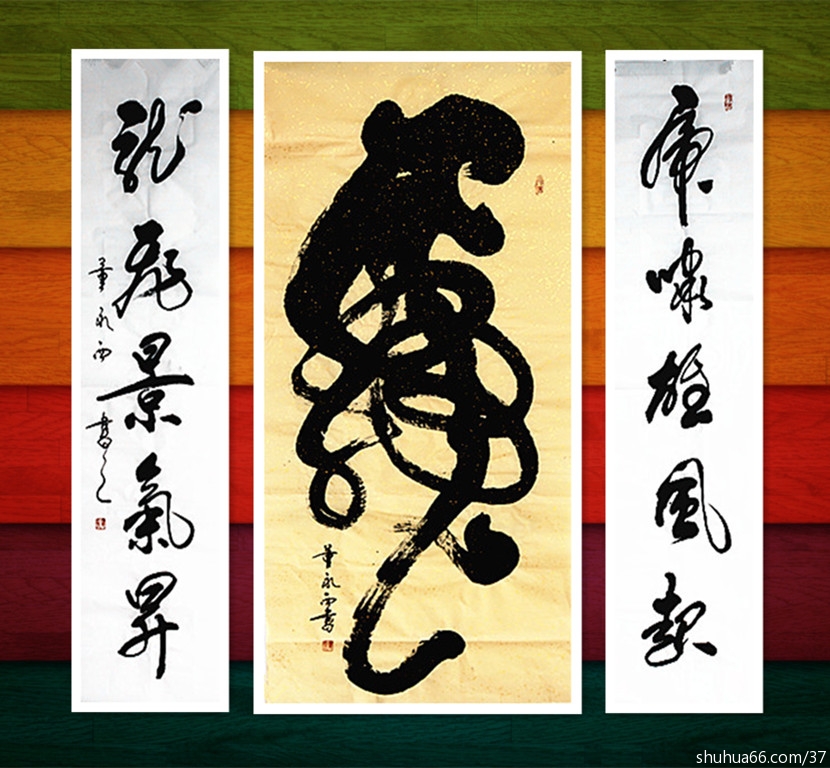 虎嘯雄風起
董永西書
龍飛景氣昇
董永西書之
shuhua66.com/37